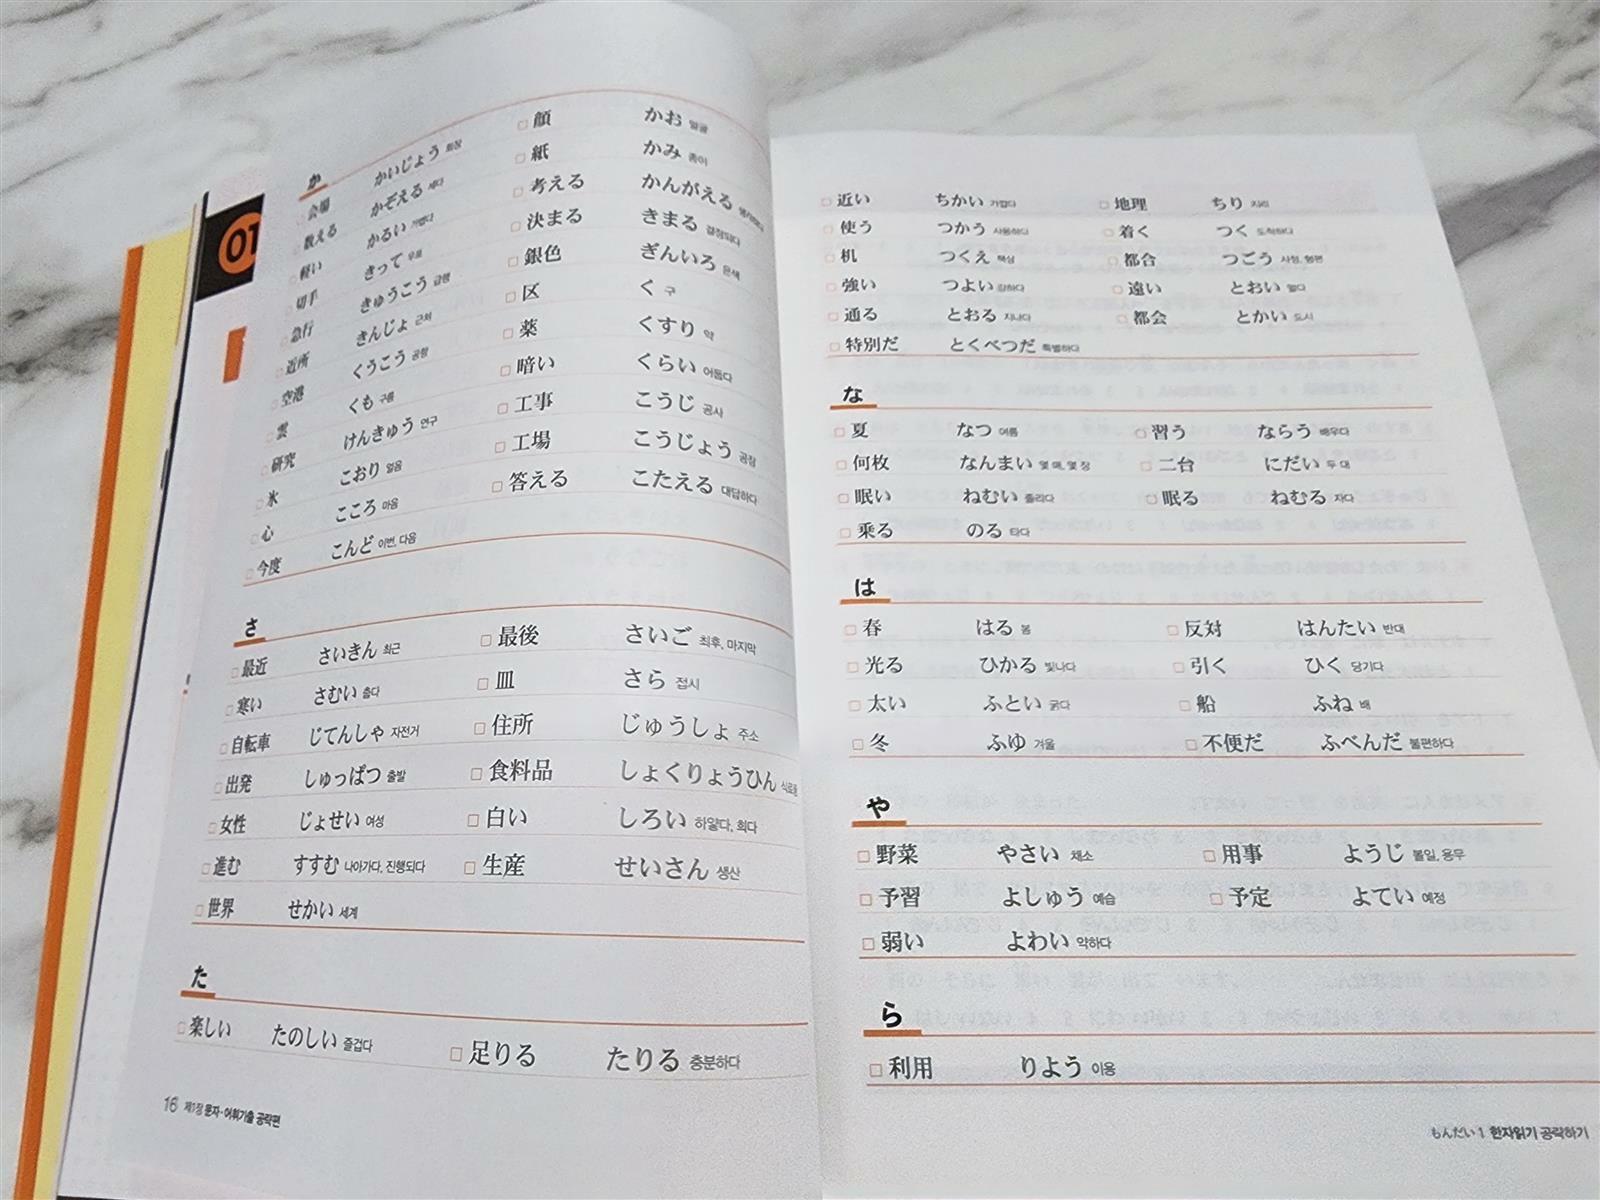 01
か
会場 かいじょう 회장 顔 かお 얼굴
数える かぞえる 세다 紙 かみ 종이
軽い かるい 가볍다 考える かんがえる 생각하다
切手 きって 우표 決まる きまる 결정되다
急行 きゅうこう 급행 銀色 ぎんいろ 은색
近所 きんじょ 근처 区 く 구
空港 くうこう 공항 薬 くすり 약
雲 くも 구름 暗い くらい 어둡다
研究 けんきゅう 연구 工事 こうじ 공사
氷 こおり 얼음 工場 こうじょう 공장
心 こころ 마음 答える こたえる 대답하다
今度 こんど 이번, 다음
さ
最近 さいきん 최근 最後 さいご 최후, 마지막
寒い さむい 춥다 皿 さら 접시
自転車 じてんしゃ 자전거 住所 じゅうしょ 주소
出発 しゅっぱつ 출발 食料品 しょくりょうひん 식료품
女性 じょせい 여성 白い しろい 하얗다, 희다
進む すすむ 나아가다, 진행되다 生産 せいさん 생산
世界 せかい 세계
た
楽しい たのしい 즐겁다 足りる たりる 충분하다
16 제1장 문자·어휘기출 공략편
近い ちかい 가깝다 地理 ちり 지리
使う つかう 사용하다 着く つく 도착하다
机 つくえ 책상 都合 つごう 사정, 형편
強い つよい 강하다 遠い とおい 멀다
通る とおる 지나다 都会 とかい 도시
特別だ とくべつだ 특별하다
な
夏 なつ 여름 習う ならう 배우다
何枚 なんまい 몇 매, 몇 장 二台 にだい 두 대
眠い ねむい 졸리다 眠る ねむる 자다
乗る のる 타다
は
春 はる 봄 反対 はんたい 반대
光る ひかる 빛나다 引く ひく 당기다
太い ふとい 굵다 船 ふね 배
冬 ふゆ 겨울 不便だ ふべんだ 불편하다
や
野菜 やさい 채소 用事 ようじ 볼일, 용무
予習 よしゅう 예습 予定 よてい 예정
弱い よわい 약하다
ら
利用 りよう 이용
もんだい1 한자읽기 공략하기